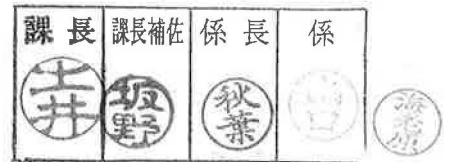 課長 課長補佐 係長 係
土井 坂野 秋葉